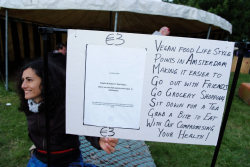 £3
Vegan food Life Style
Points in Amsterdam
Making it easier to
Go out with Friends
Go Grocery Shopping
Sit down for a Tea
Grab a Bite to Eat
With Out Compromising
Your Health!
£3